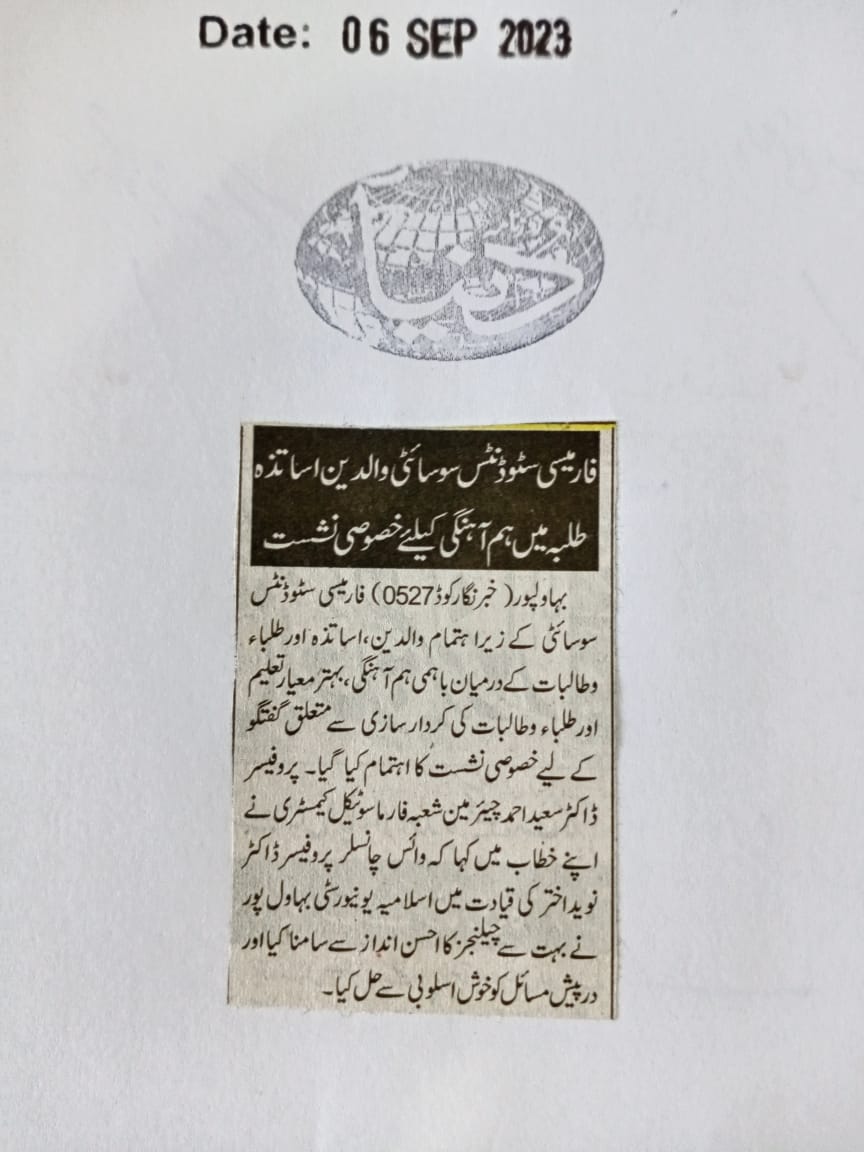 Date: 06 SEP 2023
روزنامہ
دنیا
فارمیسی سٹوڈنٹس سوسائٹی والدین اساتذہ
طلبہ میں ہم آہنگی کیلئے خصوصی نشست
بہاولپور( خبرنگارکوڈ0527) فارمیسی سٹوڈنٹس
سوسائٹی کے زیراہتمام والدین،اساتذہ اورطلباء
وطالبات کے درمیان باہمی ہم آہنگی، بہتر معیارتعلیم
اورطلباء وطالبات کی کردار سازی سے متعلق گفتگو
کے لیے خصوصی نشست کا اہتمام کیا گیا۔ پروفیسر
ڈاکٹرسعیداحمد چیئرمین شعبہ فارماسوٹیکل کیمسٹری نے
اپنے خطاب میں کہا کہ وائس چانسلر پروفیسر ڈاکٹر
نویداختر کی قیادت میں اسلامیہ یونیورسٹی بہاول پور
نے بہت سے چیلنجز کا احسن انداز سے سامنا کیا اور
درپیش مسائل کو خوش اسلوبی سے حل کیا۔